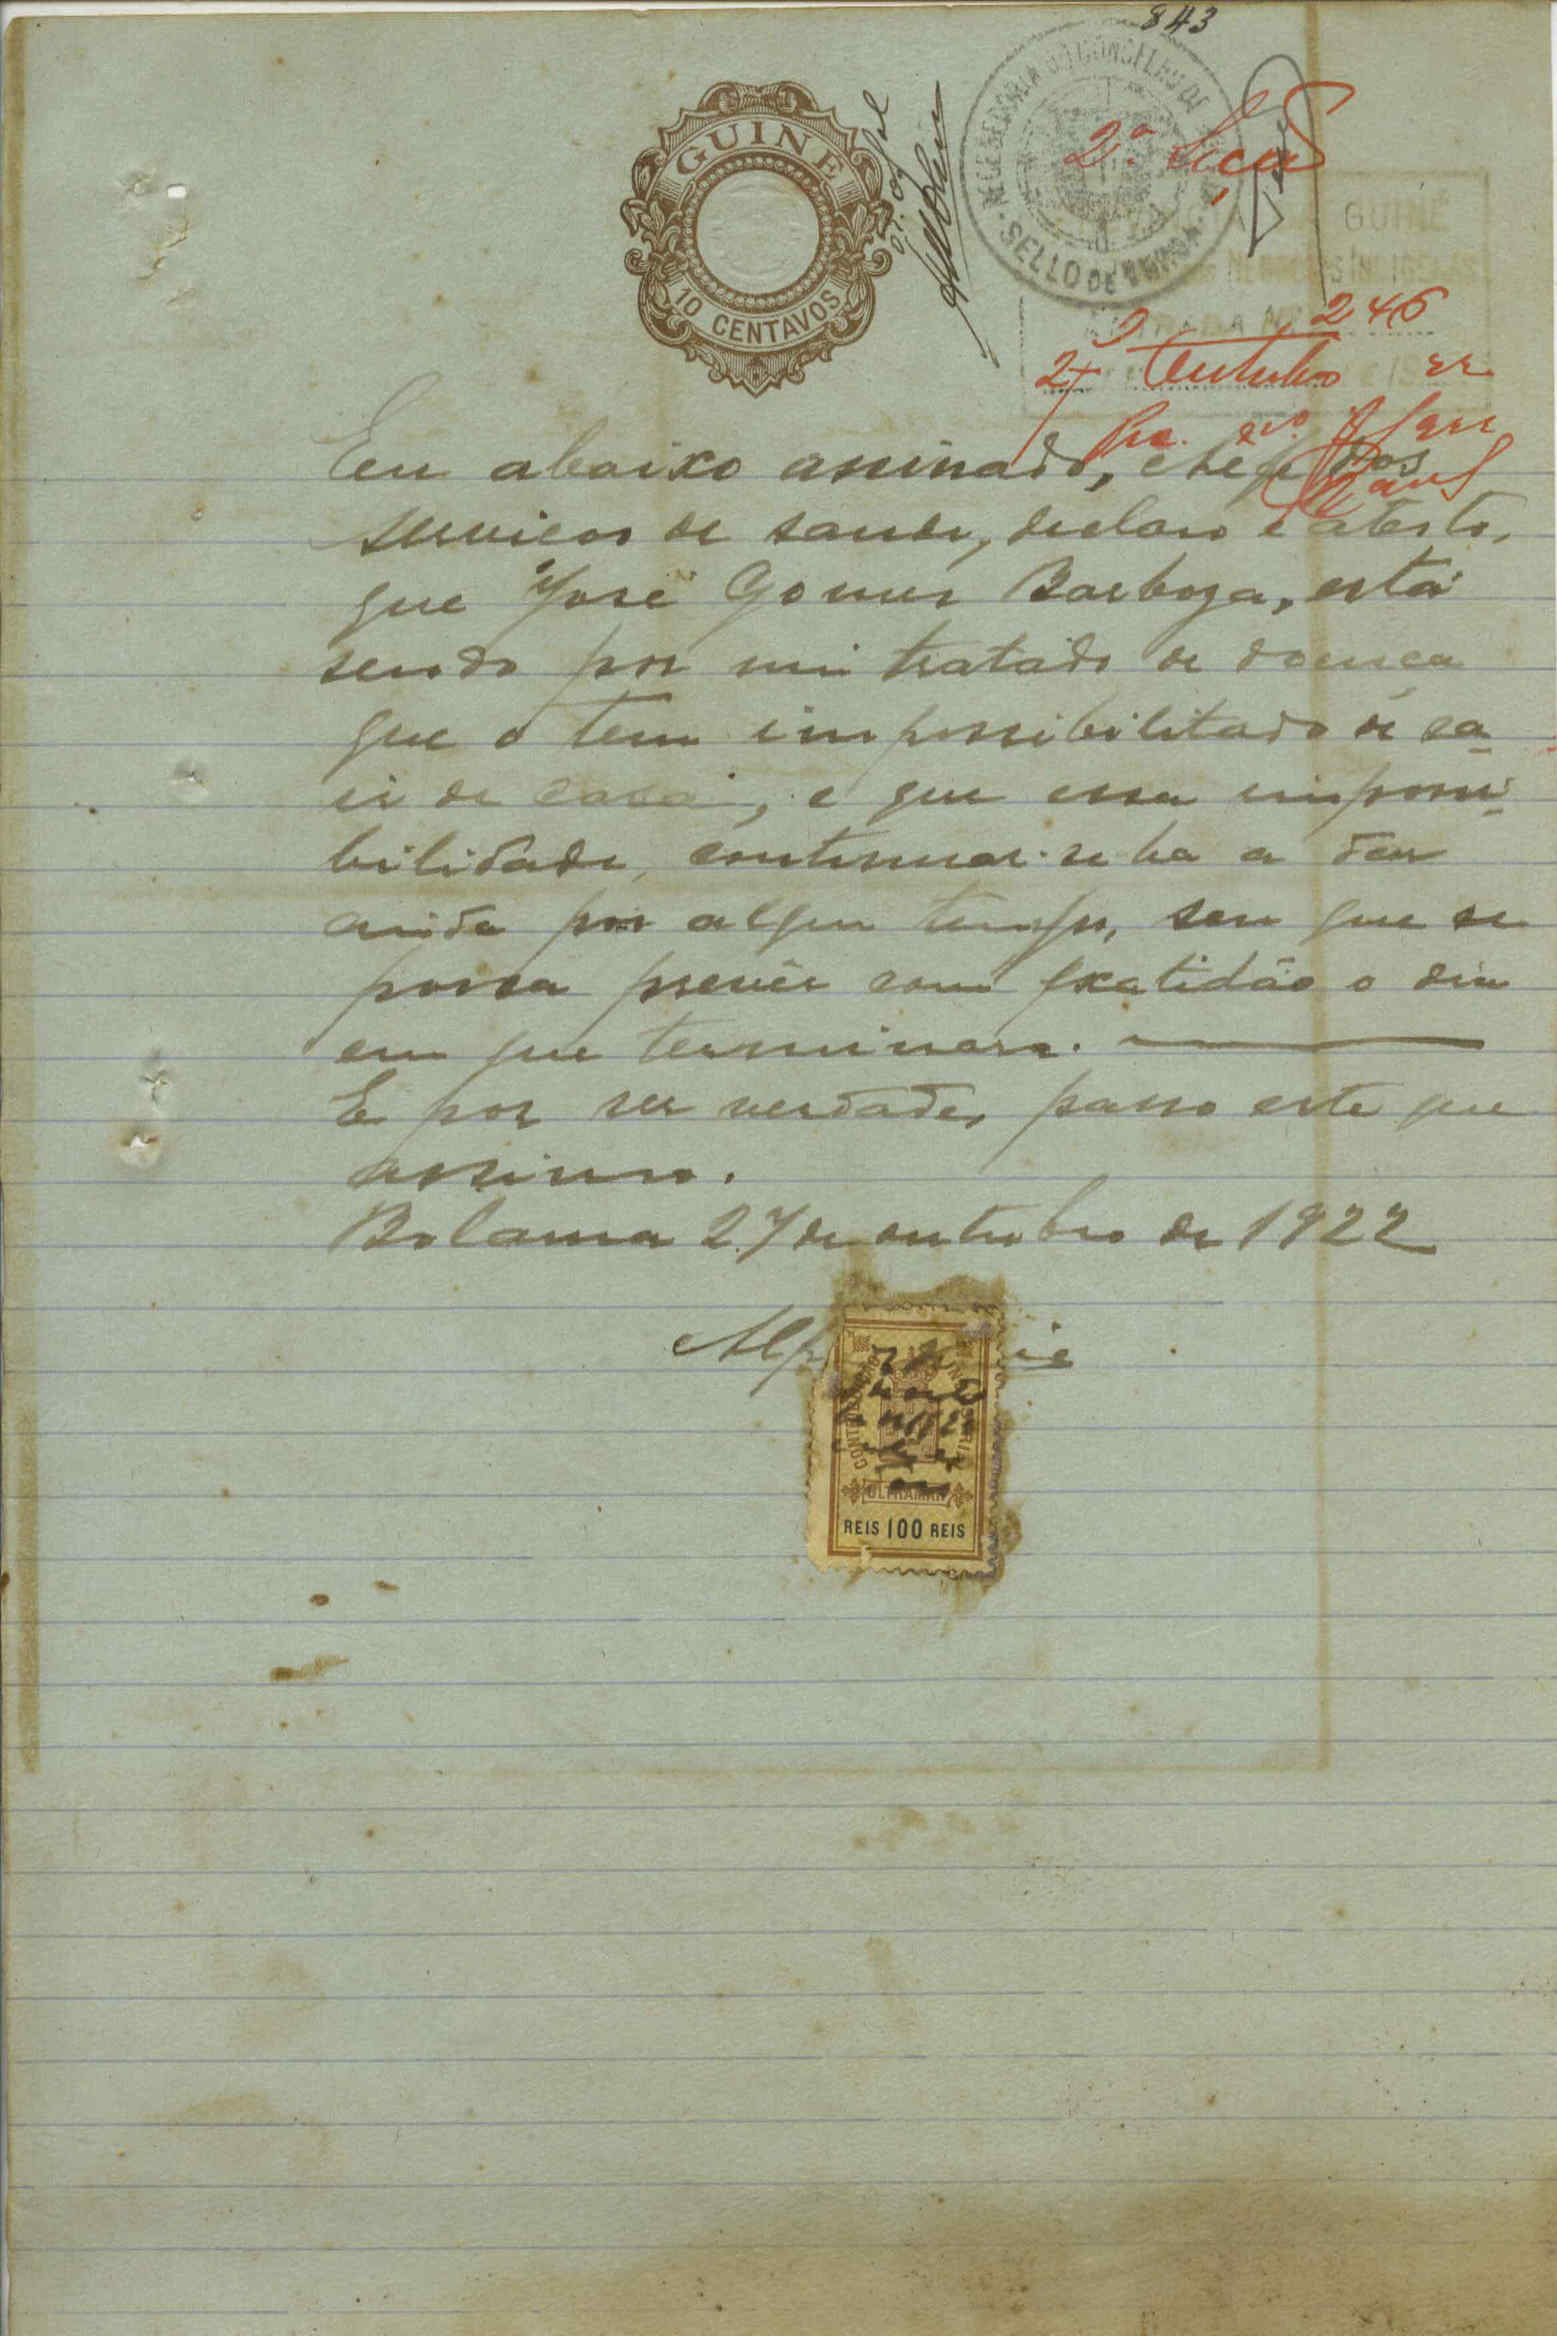 843
GUINÉ
10 CENTAVOS
SELLO DE VERBA
2ª Secção
GUINÉ
246
27 Outubro 22
Eu abaixo assinado, chefe dos
serviços de saude, declaro e atesto,
que José Gomes Barboza, está
sendo por mi tratado de doença
que o tem impossibilitado de sa-
ir de casa, e que essa impossi-
bilidade, continuar-se ha a dar
ainda por algum tempo, sem que se
possa prevêr com exatidão o dia
em que terminara.
E por ser verdade, passo este que
assino.
Bolama 27 de outubro de 1922
CONTRIBUIÇÃO INDUSTRIAL
ULTRAMAR
REIS 100 REIS